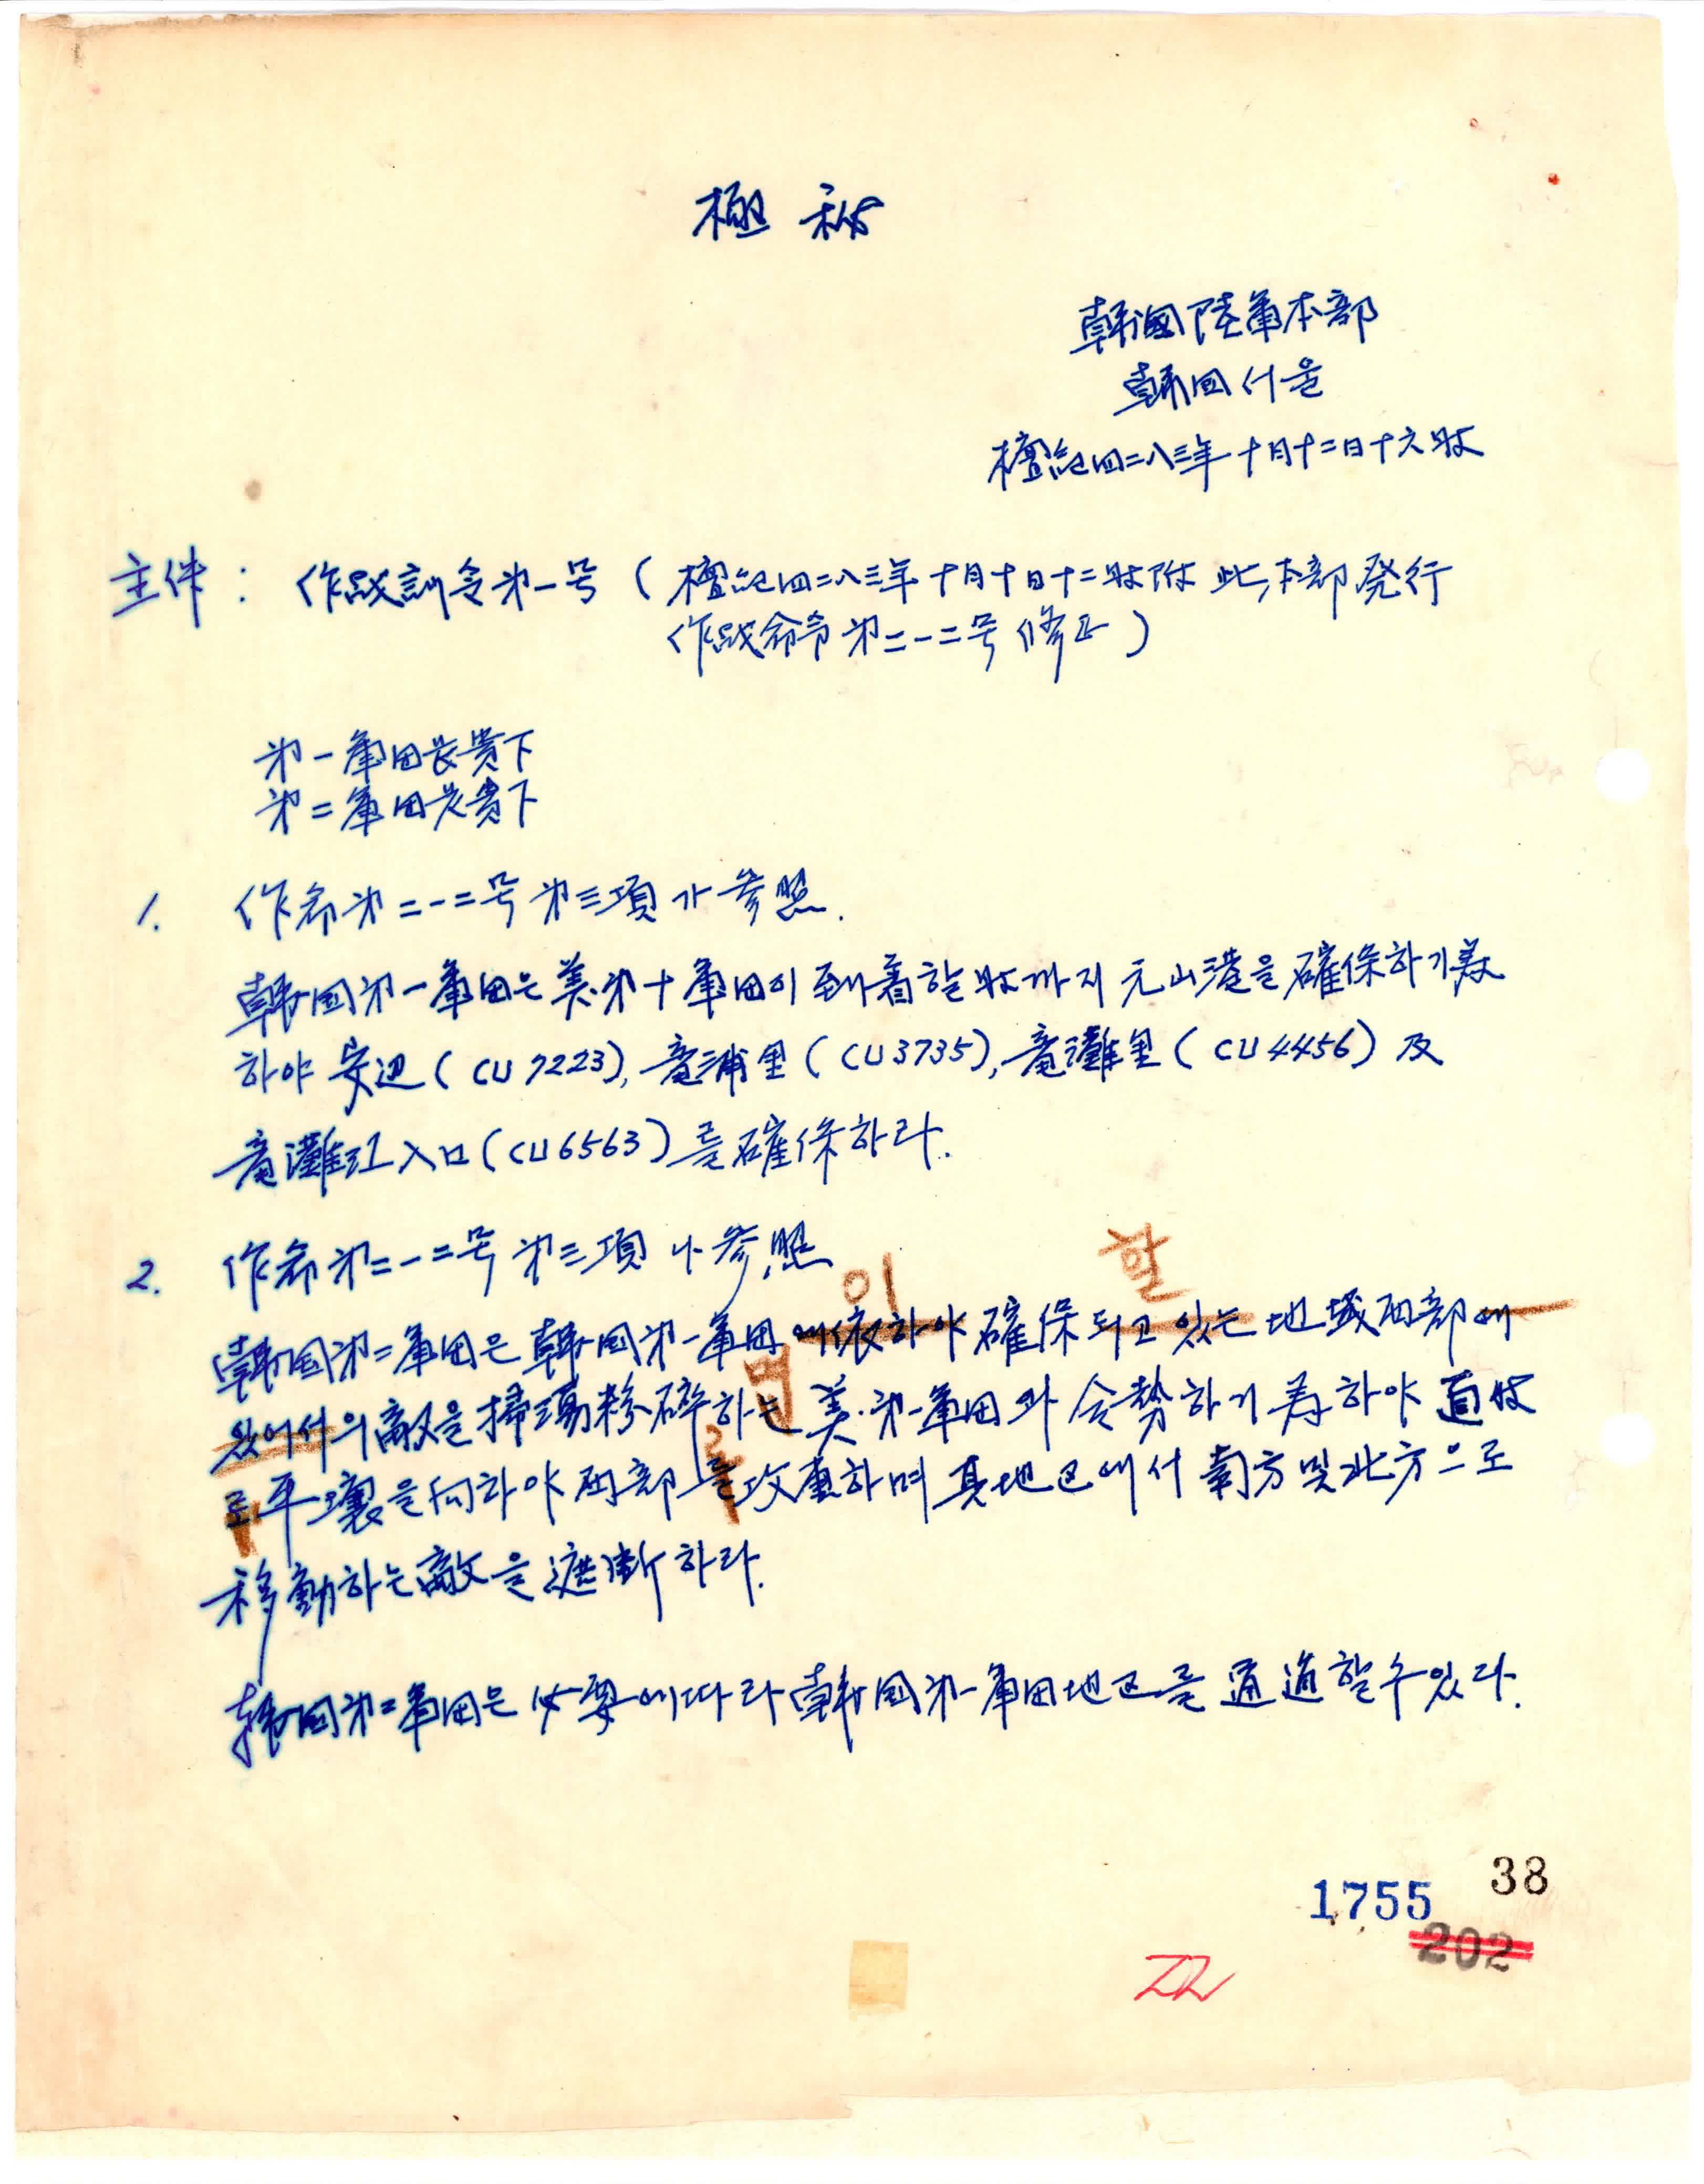 極秘
韓國陸軍本部
韓国서울
檀紀四二八三年十月十二日十六時
主件: 作戰訓令第一号 (檀紀四二八三年十月十日十二時附 此本部発行
作戰命令 第二一二号 修正)
第一軍団長貴下
第二軍団長貴下
1. 作命第二一二号 第三項 가 参照.
韓国第一軍団은 美.第十軍団이 到着할 時까지 元山港을 確保하기 爲
하야 安辺(CU7223), 竜浦里(CU3735), 竜灘里(CU4456) 及
竜灘江入口(CU6563)를 確保하라.
2. 作命第二一二号 第三項 나 参照
이 할
韓国第二軍団은 韓国第一軍団에 依하야 確保되고 있는 地域西部에
며
있어서의 敵을 掃蕩粉碎하는 美.第一軍団과 合勢하기 爲하야 直時
로
로 平壤을 向하야 西部를 攻擊하며 其地区에서 南方 및 北方으로
移動하는 敵을 遮断하라.
韓国第二軍団은 必要에 따라 韓国第一軍団地区를 通過할 수 있다.
38
1755
202